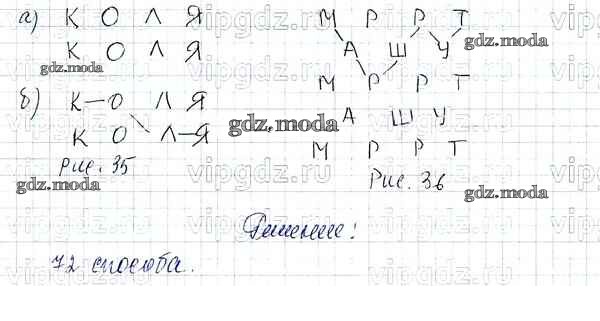 а) К О Л Я
К О Л Я
gdz.moda
б) К-О Л Я
К О Л-Я
Рис. 35
gdz.moda
М Р Р Т
А Ш У
gdz.moda
М Р Р Т
А Ш У
gdz.moda
М Р Р Т
Рис. 36
gdz.moda
Решение:
72 способа.
vipgdz.ru